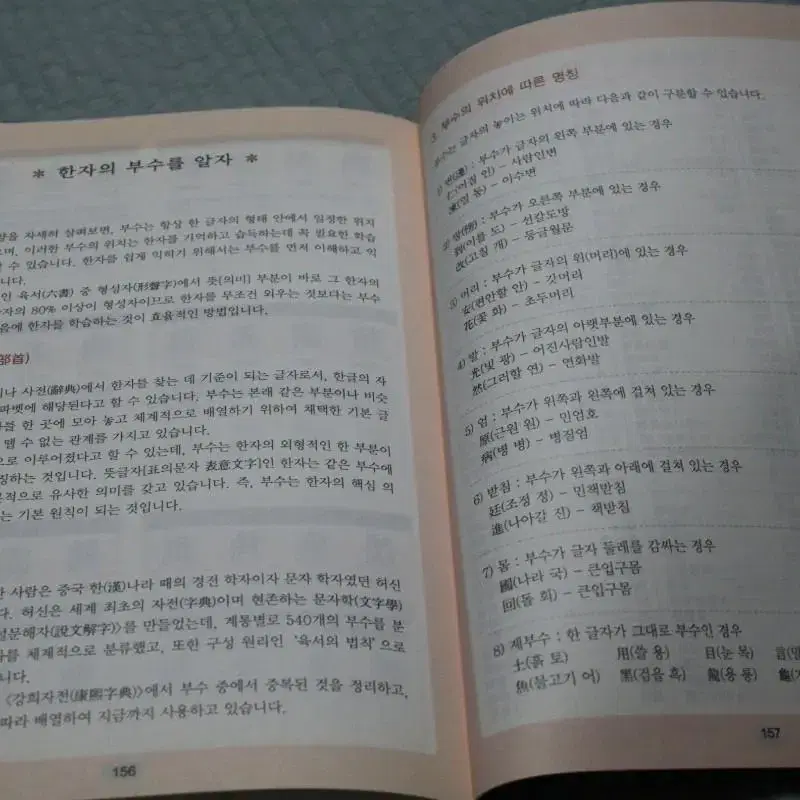 * 한자의 부수를 알자 *
양을 자세히 살펴보면, 부수는 항상 한 글자의 형태 안에서 일정한 위치
으며, 이러한 부수의 위치는 한자를 기억하고 습득하는데 꼭 필요한 학습
할 수 있습니다. 한자를 쉽게 익히기 위해서는 부수를 먼저 이해하고 익
니다.
인 육서(六書) 중 형성자(形聲字)에서 뜻[의미] 부분이 바로 그 한자의
자의 80% 이상이 형성자이므로 한자를 무조건 외우는 것보다는 부수
음에 한자를 학습하는 것이 효율적인 방법입니다.
部首)
이나 사전(辭典)에서 한자를 찾는 데 기준이 되는 글자로서, 한글의 자
파벳에 해당된다고 할 수 있습니다. 부수는 본래 같은 부분이나 비슷
를 한 곳에 모아 놓고 체계적으로 배열하기 위하여 채택한 기본 글
뗄 수 없는 관계를 가지고 있습니다.
으로 이루어졌다고 할 수 있는데, 부수는 한자의 외형적인 한 부분이
징하는 것입니다. 뜻글자[표의문자 表意文字]인 한자는 같은 부수에
본적으로 유사한 의미를 갖고 있습니다. 즉, 부수는 한자의 핵심 의
는 기본 원칙이 되는 것입니다.
한 사람은 중국 한(漢)나라 때의 경전 학자이자 문자 학자였던 허신
다. 허신은 세계 최초의 자전(字典)이며 현존하는 문자학(文字學)
설문해자(說文解字)》를 만들었는데, 계통별로 540개의 부수를 분
자를 체계적으로 분류했고, 또한 구성 원리인 '육서의 법칙'으로
니다.
《강희자전(康熙字典)》에서 부수 중에서 중복된 것을 정리하고,
따라 배열하여 지금까지 사용하고 있습니다.
156
3. 부수의 위치에 따른 명칭
부수는 글자의 놓이는 위치에 따라 다음과 같이 구분할 수 있습니다.
1) 변(邊) : 부수가 글자의 왼쪽 부분에 있는 경우
仁(어질 인) - 사람인변
凍(얼 동) - 이수변
2) 방(傍) : 부수가 오른쪽 부분에 있는 경우
到(이를 도) - 선칼도방
改(고칠 개) - 둥글월문
3) 머리 : 부수가 글자의 위(머리)에 있는 경우
安(편안할 안) - 갓머리
花(꽃 화) - 초두머리
4) 발 : 부수가 글자의 아랫부분에 있는 경우
光(빛 광) - 어진사람인발
然(그러할 연) - 연화발
5) 엄 : 부수가 위쪽과 왼쪽에 걸쳐 있는 경우
原(근원 원) - 민엄호
病(병 병) - 병질엄
6) 받침 : 부수가 왼쪽과 아래에 걸쳐 있는 경우
廷(조정 정) - 민책받침
進(나아갈 진) - 책받침
7) 몸 : 부수가 글자 둘레를 감싸는 경우
國(나라 국) - 큰입구몸
回(돌 회) - 큰입구몸
8) 제부수 : 한 글자가 그대로 부수인 경우
土(흙 토) 用(쓸 용) 目(눈 목) 言(말
魚(물고기 어) 黑(검을 흑) 龍(용 룡) 龜(거
157